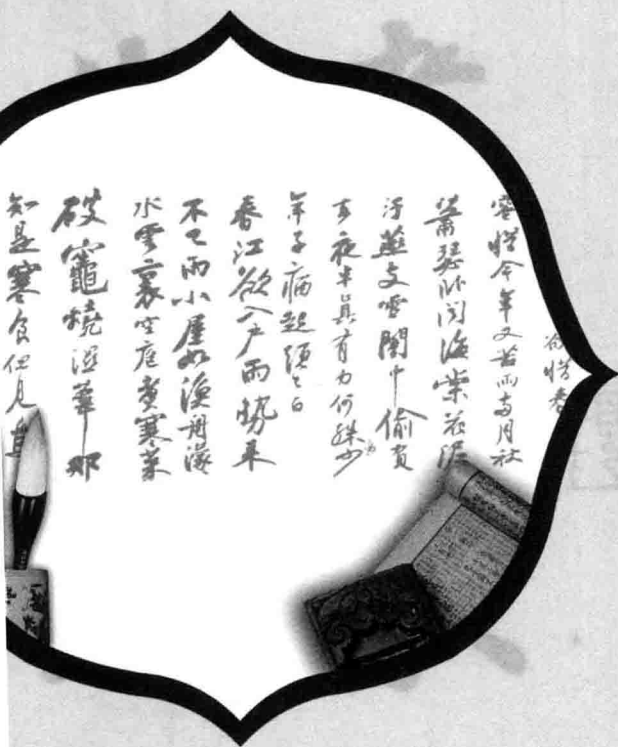 欲惜春
容惜今年又苦雨兩月秋
蕭瑟臥聞海棠花泥
汙燕支雪闇中偷負
去夜半真有力何殊少
年子病起頭已白
春江欲入戶雨勢來
不已雨小屋如漁舟濛
水雲裏空庖煮寒菜
破竈燒濕葦那
知是寒食但見烏